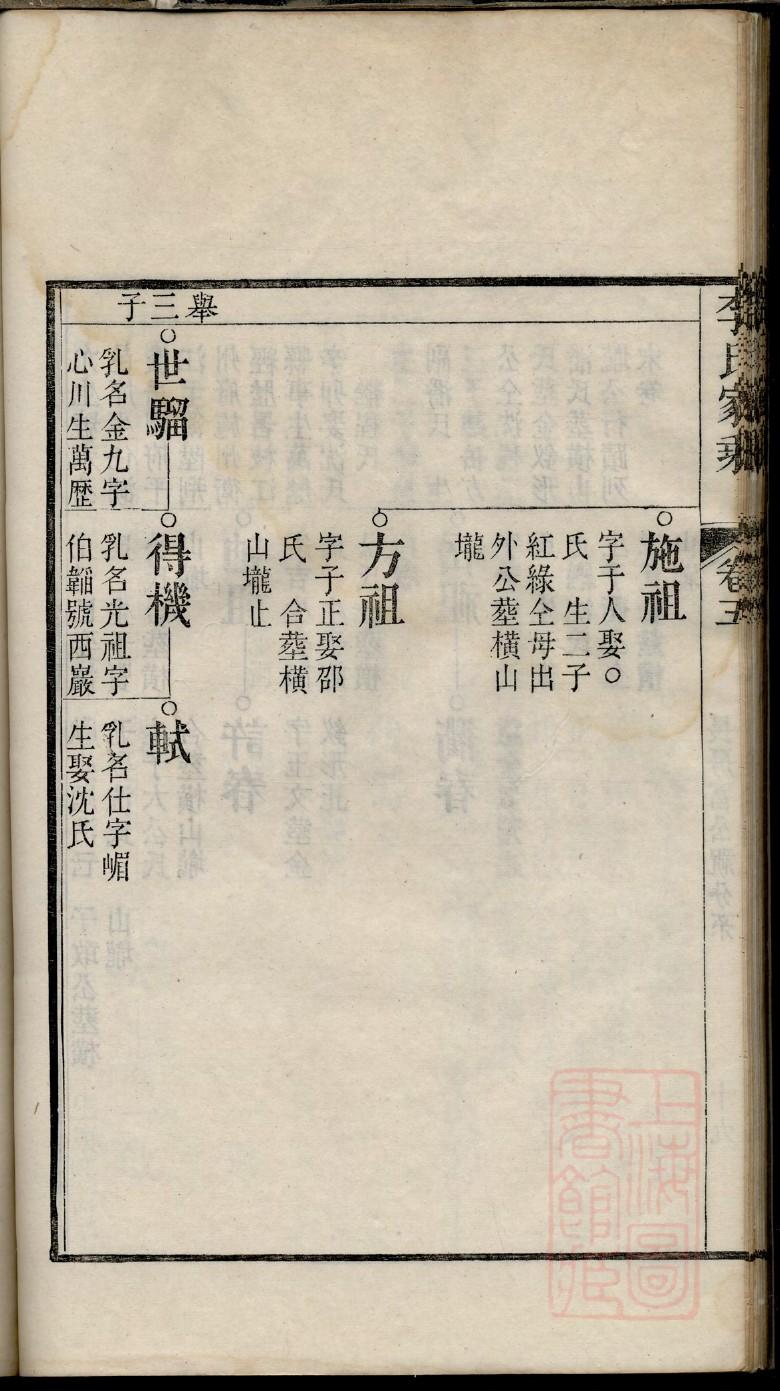 李氏家乘
卷三
施祖
字于人娶○
氏 生二子
紅綠仝母出
外公塟橫山
壠
方祖
字子正娶邵
氏 合塟橫
山壠止
舉三子
世騮
乳名金九字
心川生萬歴
得機
乳名光祖字
伯韜號西巖
軾
乳名仕字嵋
生娶沈氏
上海圖
書館藏